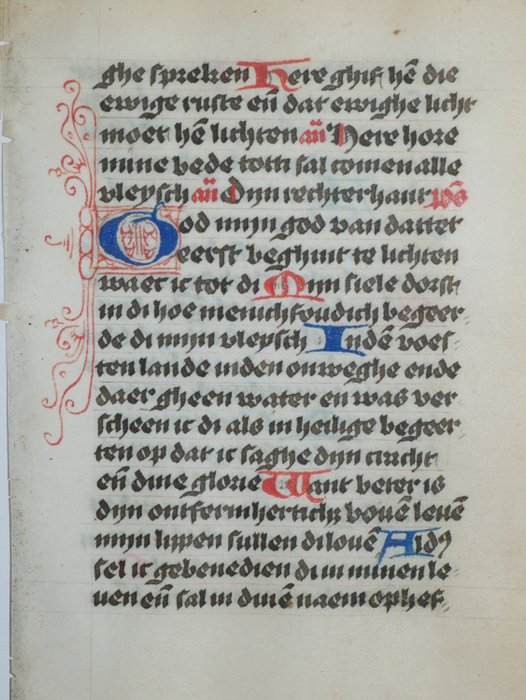 ghe spreken Here ghif hē die
ewige ruste eñ dat ewighe licht
moet hē lichten añ Here hore
mine bede totti sal comen alle
vleysch añ Dijn rechterhant ps
God mijn god van dattet
eerst beghint te lichten
waec ic tot di Mijn siele dorst
in di hoe menichfoudich begeer
de di mijn vleysch Indē woes
ten lande inden onweghe ende
daer gheen water en was ver
scheen ic di als in heilige begeer
ten op dat ic saghe dijn cracht
eñ dine glorie Want beter is
dijn ontfermherticheit bouē leuē
mijn lippen sullen di louē Aldꝰ
sel ic gebenedien di in minen le
uen eñ sal in dinē naem ophef